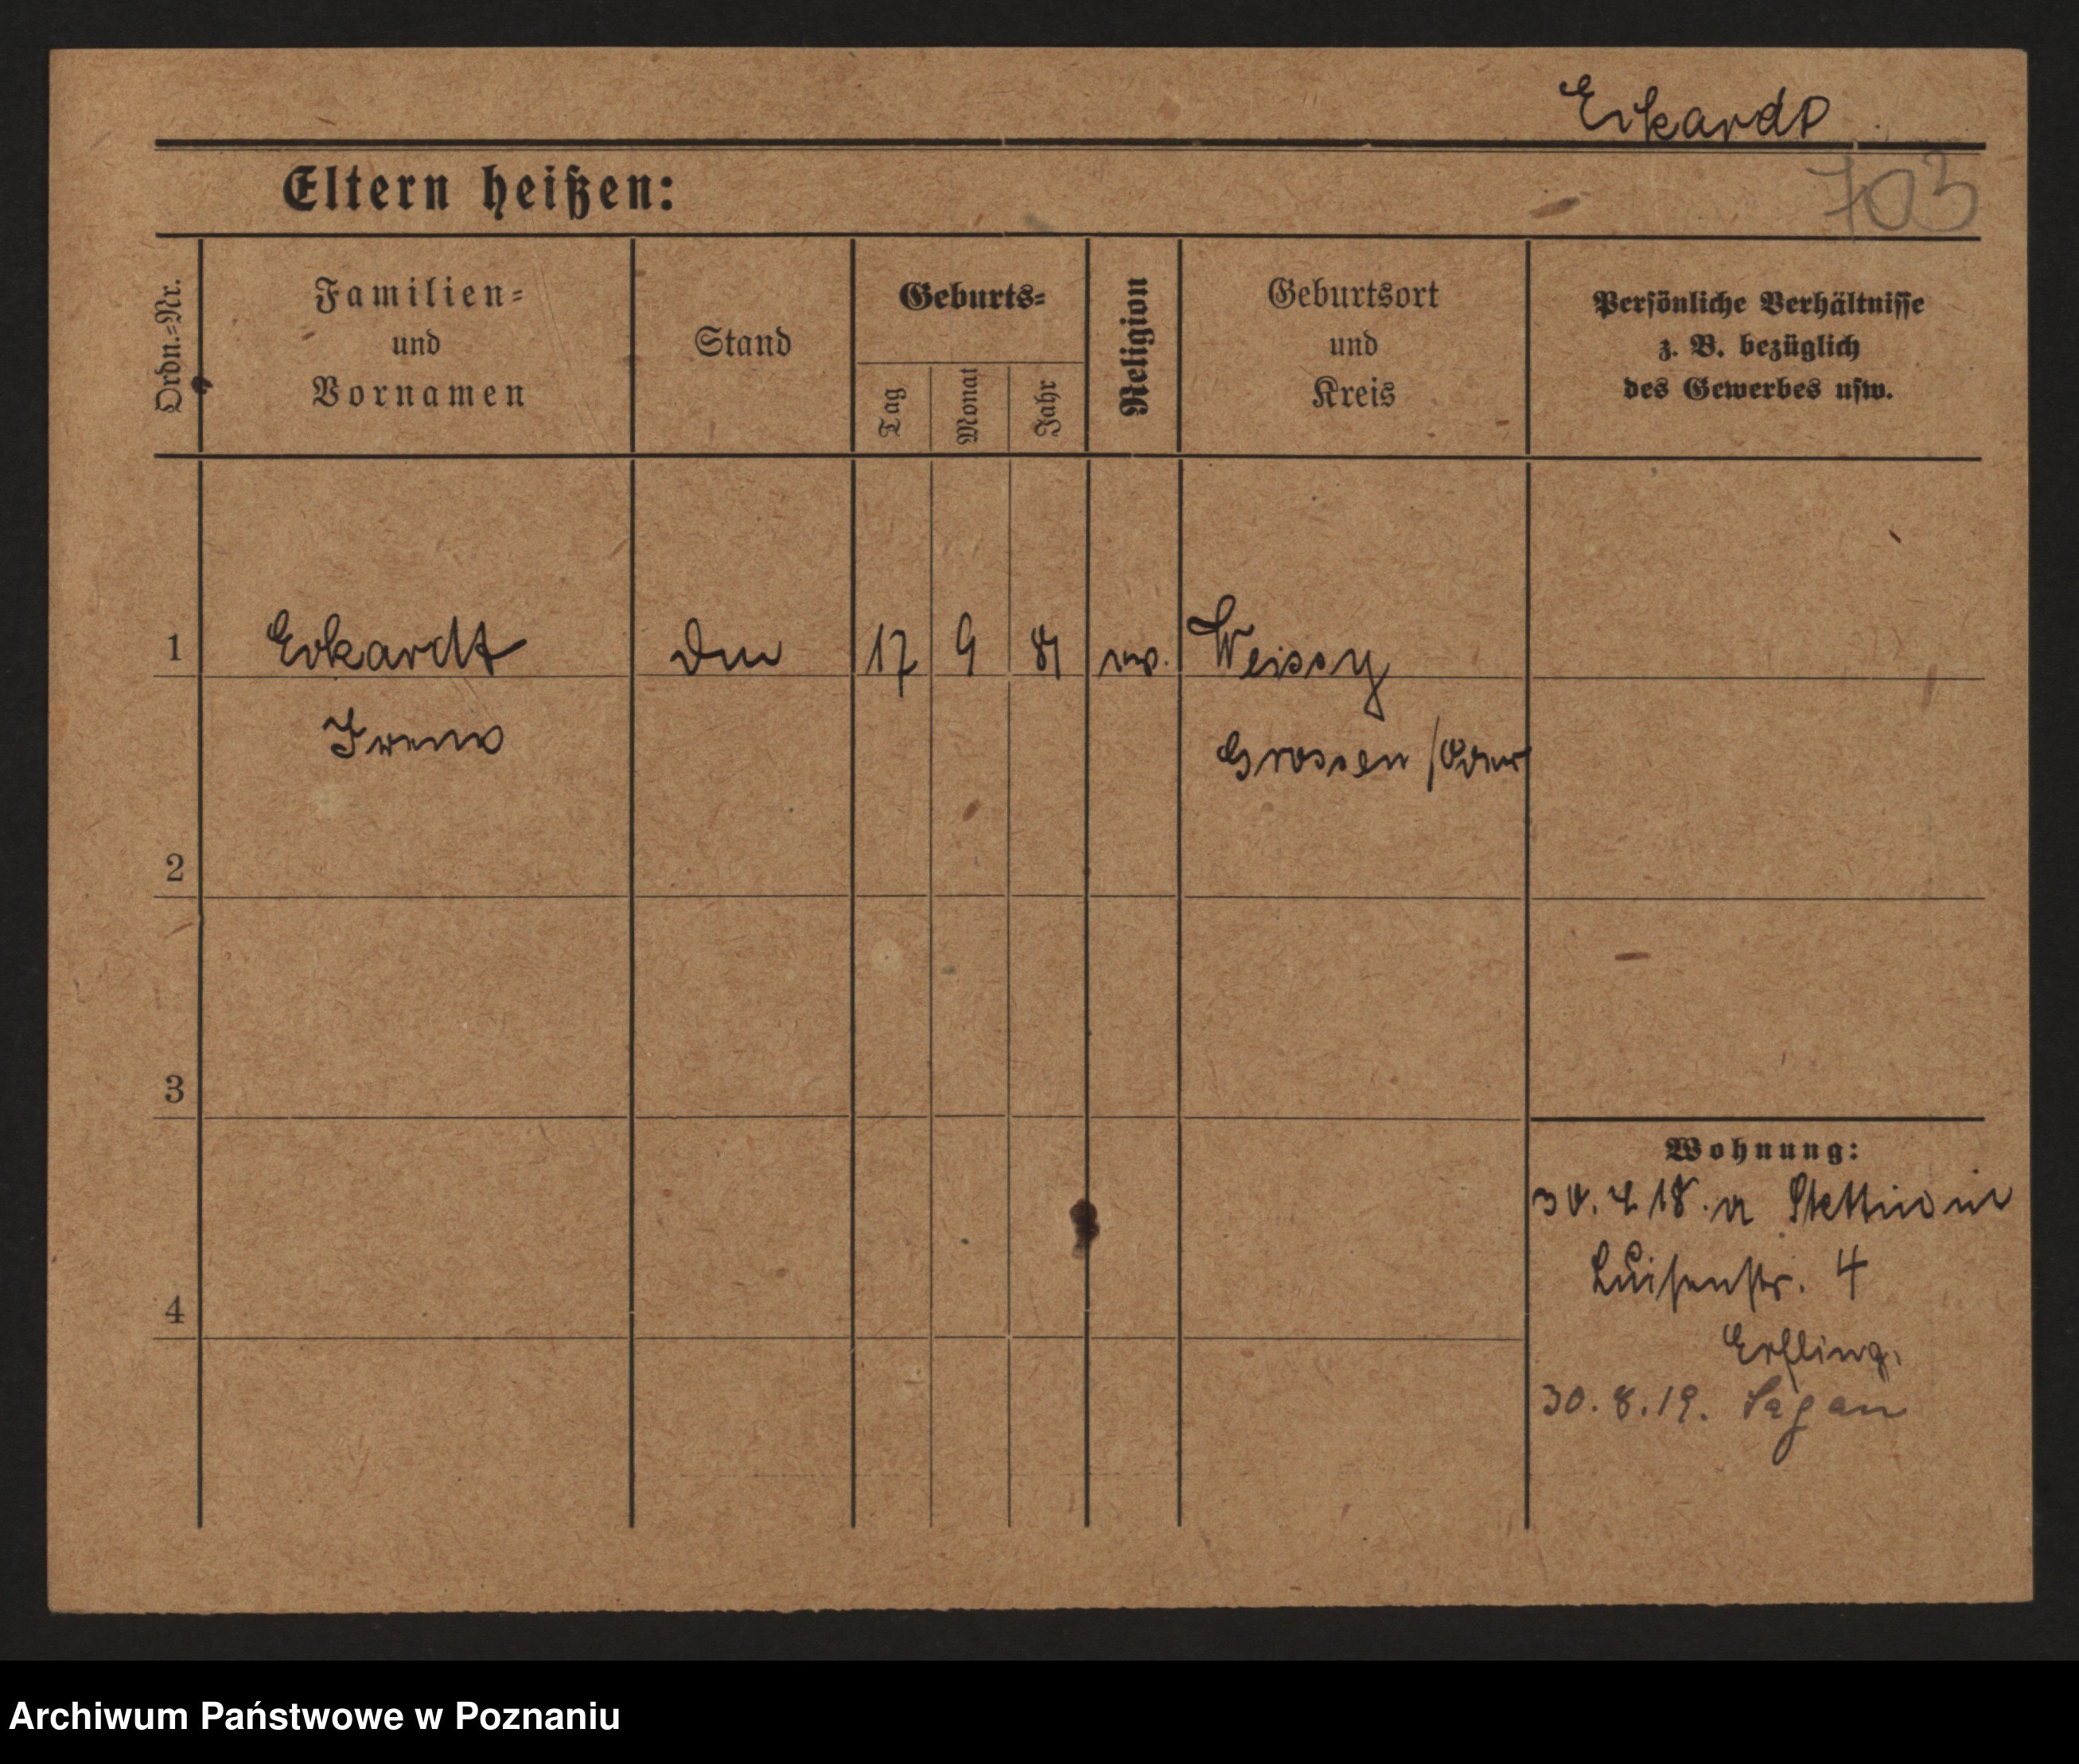 Eckardt
703
Eltern heißen:
Ordn.=Nr.
Familien=
und
Vornamen
Stand
Geburts=
Tag
Monat
Jahr
Religion
Geburtsort
und
Kreis
Persönliche Verhältnisse
z. B. bezüglich
des Gewerbes usw.
1
Eckardt
17
9
ev.
Weissig
Irene
Crossen /Oder
2
3
4
Wohnung:
30. 4 18. a Stettin
Luisenstr. 4
30. 8. 19. Sagan
Archiwum Państwowe w Poznaniu